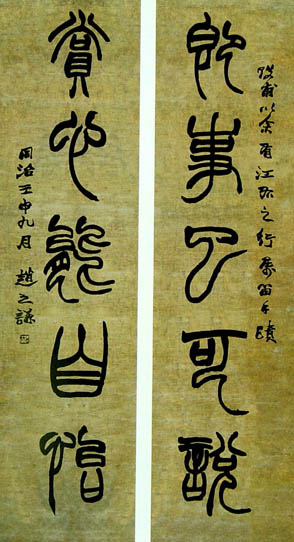 即事可說
以余有江之行留手蹟
賞心能自怡
同治壬申九月 趙之謙